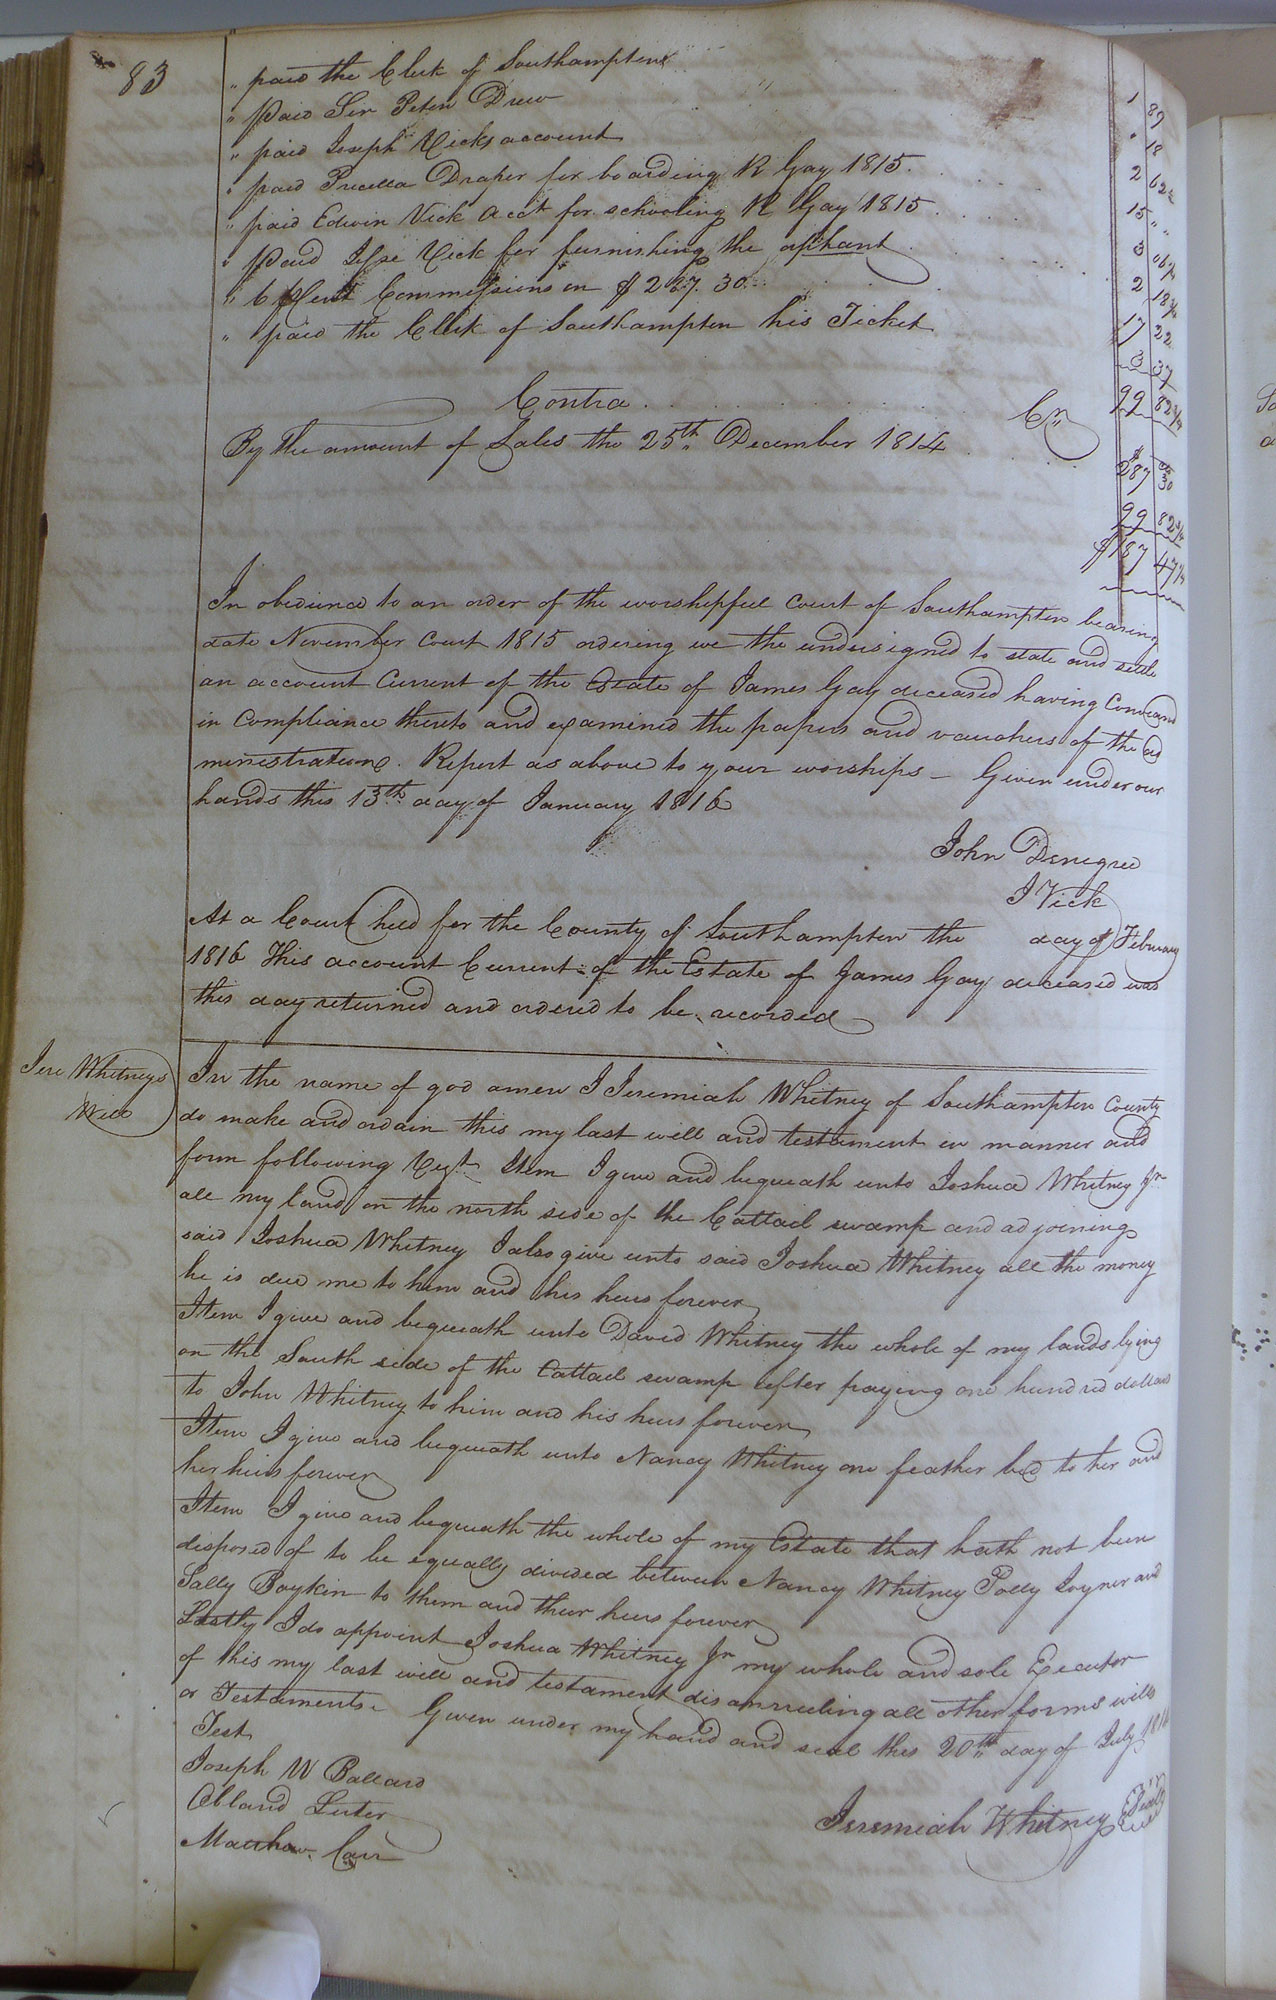 83
" paid the Clerk of Southampton 1 89
" Paid Ser Peter Drew " 18
" paid Joseph Vicks account 2 62
" paid Precilla Draper for boarding R Gay 1815. 15 " "
" paid Edwin Vick acct for schooling R Gay 1815 3 06 1/4
" Paid Jesse Vick for furnishing the orphant 2 18 3/4
" 6 pCent Commissions on $ 287.30 17 22
" paid the Clerk of Southampton his Ticket 3 37
Contra Cr 99 82 3/4
By the amount of Sales the 25th December 1814 $287 cts 30
99 82 3/4
$187 47 1/4
In obedience to an order of the worshipful court of Southampton bearing
date November Court 1815 ordering we the undersigned to state and settle
an account Current of the Estate of James Gay deceased having Convean'd
in Compliance thereto and examined the papers and vouchers of the ad
ministrations. Report as above to your worships – Given under our
hands this 13th day of January 1816
John Denegree
J Vick
At a Court held for the County of Southampton the day of February
1816 This account Current of the Estate of James Gay deceased was
this day returned and ordered to be recorded
Jere Whitneys
Will
In the name of god amen I Jeremiah Whitney of Southampton County
do make and ordain this my last will and testament in manner and
form following Vizt Item I give and bequeath unto Joshua Whitney Jr
all my land on the north side of the Cattail swamp and adjoining
said Joshua Whitney I also give unto said Joshua Whitney all the money
he is due me to him and his heirs forever
Item I give and bequeath unto David Whitney the whole of my lands lying
on the South side of the Cattail swamp after paying one hundred dollars
to John Whitney to him and his heirs forever
Item I give and bequeath unto Nancy Whitney one feather bed to her and
her heirs forever
Item I give and bequeath the whole of my Estate that hath not been
disposed of to be equally divided between Nancy Whitney Polly Joyner and
Sally Boykin to them and their heirs forever
Lastly I do appoint Joshua Whitney Jr my whole and sole Executor
of this my last will and testament disannuling all other forms wills
or Testaments. Given under my hand and seal this 20th day of July 181
Test
Joseph W Ballard
Olland Luter
Matthew Carr
Jeremiah Whitney Seal